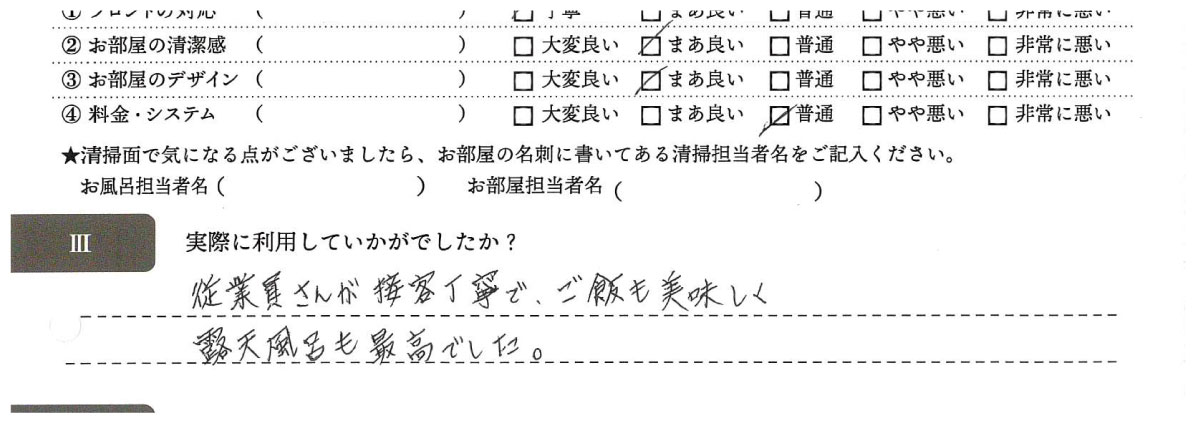 ① フロントの対応 ( ) □ 丁寧 □ まあ良い □ 普通 □ やや悪い □ 非常に悪い
② お部屋の清潔感 ( ) □ 大変良い ☑ まあ良い □ 普通 □ やや悪い □ 非常に悪い
③ お部屋のデザイン ( ) □ 大変良い ☑ まあ良い □ 普通 □ やや悪い □ 非常に悪い
④ 料金・システム ( ) □ 大変良い □ まあ良い ☑ 普通 □ やや悪い □ 非常に悪い
★清掃面で気になる点がございましたら、お部屋の名刺に書いてある清掃担当者名をご記入ください。
お風呂担当者名 ( ) お部屋担当者名 ( )
Ⅲ 実際に利用していかがでしたか？
従業員さんが接客丁寧で、ご飯も美味しく
露天風呂も最高でした。